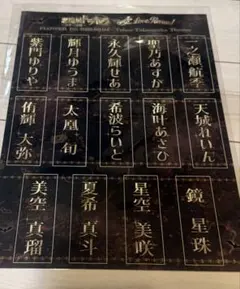 Tokyo Takarazuka Theater
一之瀬航季
聖乃あすか
永久輝せあ
輝月ゆうま
紫門ゆりや
天城れいん
海叶あさひ
希波らいと
太凰 旬
侑輝 大弥
鏡 星珠
星空 美咲
夏希 真斗
美空 真瑠